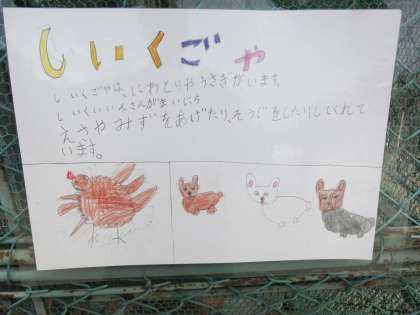 しいくごや
しいくごやは、にわとりやうさぎがいます。
しいくいいんさんがまいにち
えさやみずをあげたり、そうじをしたりしてくれて
います。